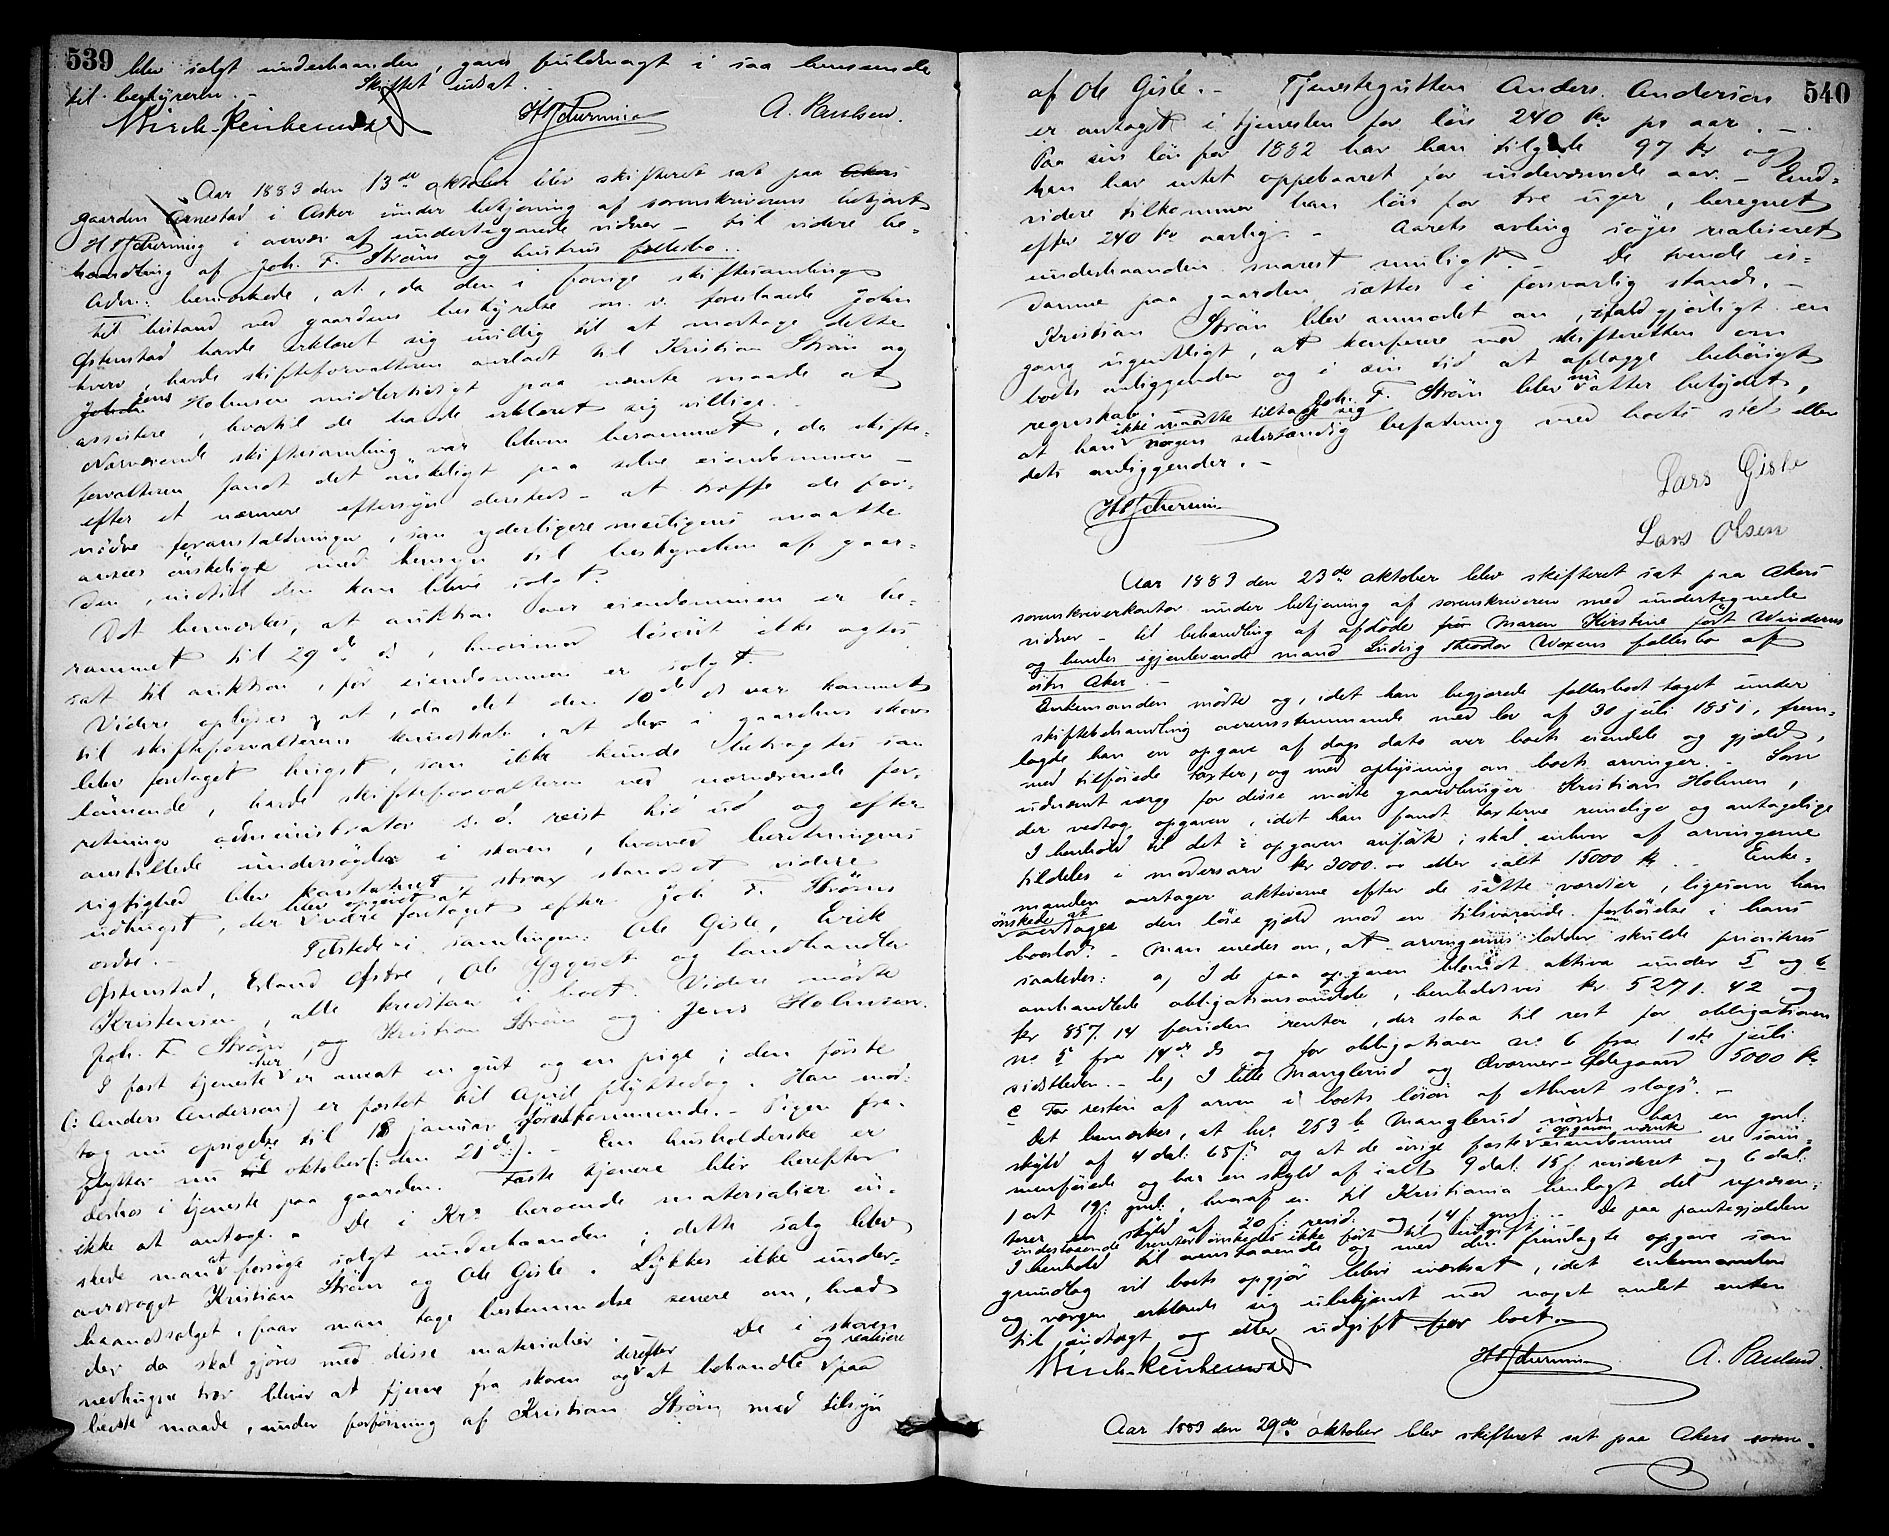 539
blev solgt underhaanden, gaves fuldmagt i saa henseende
til bestyreren. – Skiftet udsat.
A. Paulsen.
Aar 1883 den 13de oktober blev skifteret sat paa
gaarden Arnestad i Asker under betjening af sorenskriverens
i nærvær af undertegnede vidner – til videre be-
handling af Joh. F. Strøms og hustrus fællesbo.
Adm: bemærkede, at, da den i forrige skiftesamling
til bistand ved gaardens bestyrelse m. v. foreslaaede John
Østenstad havde erklæret sig uvillig til at modtage dette
hverv, havde skifteforvalteren overladt til Kristian Strøm og
Jens Holmsen midlertidigt paa nævnte maade at
assistere, hvortil de havde erklæret sig villige. –
Nærværende skiftesamling var bleven berammet, da skifte-
forvalteren fandt det ønskeligt paa selve eiendommen –
efter et nærmere eftersyn dersteds – at træffe de for-
nødne foranstaltninger, som yderligere maatte
ansees ønskelige med hensyn til bestyrelsen af gaar-
den, indtil den kan blive solgt.
Det bemærkes, at auktion over eiendommen er be-
rammet til 29de ds, hvorimod løsøret ikke agtes
sat til auktion, før eiendommen er solgt.
Videre oplyses, at, da det den 10de ds var kommet
til skifteforvalterens kundskab, at der i gaardens skove
blev foretaget hugst, som ikke kunde betragtes som
lønnende, havde skifteforvalteren ved nærværende for-
retnings administrator s. d. reist hid ud og efter
anstillede undersøgelse i skoven, hvorved beretningens
rigtighed blev konstateret, strax standset videre
udhugst, der blev opgivet at være foretaget efter Joh. F. Strøms
ordre. – Tilstede i samlingen: Ole Gisle, Erik
Østenstad, Erland Østre, Ole Yggeset og landhandler
Kristensen, alle kreditorer i boet. Videre mødte
Joh. F. Strøm, og Kristian Strøm og Jens Holmsen.
I fast tjeneste her er ansat en gut og en pige; den første
(: Anders Anderson) er fæstet til April flyttedag. Han mod-
tog nu opsigelse til 18 januar førstkommende. – Pigen fra-
flytter nu i oktober (: den 21de:). – En husholderske er
desuden i tjeneste paa gaarden. Faste tjenere blir herefter
ikke at antage. – De i Kra beroende materialier øn-
skede man at forsøge solgt underhaanden; dette salg blev
overdraget Kristian Strøm og Ole Gisle. Lykkes ikke under-
haandssalget, faar man tage bestemmelse senere om, hvad
der da skal gjøres med disse materialier. De i skoven
nedhugne trær bliver at fjerne fra skoven og derefter at behandle og realisere paa
bedste maade, under forføining af Kristian Strøm med tilsyn
540
af Ole Gisle. – Tjenestegutten Anders Anderson
er antaget i tjenesten for løn 240 kr pr aar. –
Paa sin løn for 1882 har han tilgode 97 kr og
han har intet oppebaaret for indeværende aar. – End-
videre tilkommer han løn for tre uger, beregnet
efter 240 kr aarlig. – Aarets avling søges realiseret
underhaanden snarest muligt. – De tvende is-
damme paa gaarden sættes i forsvarlig stand. –
Kristian Strøm blev anmodet om, ifald gjørligt en
gang ugentligt, at konferere med skifteretten om
boets anliggender og i sin tid at aflægge behørigt
regnskab. Joh. F. Strøm blev nu atter betydet,
at han ikke maatte tiltage sig nogen selvstændig befatning med boets sted eller
dets anliggender. –
Lars Gisle
Lars Olsen
Aar 1883 den 23de oktober blev skifteret sat paa Akers
sorenskriverkontor under betjening af sorenskriveren med undertegnede
vidner – til behandling af afdøde fru Maren Kirstine født Winderns
og hendes igjenlevende mand Ludvig Theodor Woxens fællesbo af
østre Aker. –
Enkemanden mødte og, idet han begjærede fællesboet taget under
skiftebehandling overensstemmende med lov af 30 juli 1851, frem-
lagde han en opgave af dags dato over boets eiendele og gjæld,
med tilføiede taxter, og med oplysning om boets arvinger. – Som
udnævnt værge for disse mødte gaardbruger Kristian Holmen,
der vedtog opgaven, idet han fandt taxterne rimelige og antagelige
I henhold til det i opgaven anførte skal enhver af arvingerne
tildeles i mødrearv kr 3000.00 eller ialt 15000 kr. – Enke-
manden overtager aktiverne efter de satte værdier, ligesom han
ønskede at overtage den løse gjæld mod en tilsvarende forhøielse i hans
boeslod. – Man enedes om, at arvingernes lodder skulde prioriteres
saaledes: a, I de paa opgaven blandt aktiva under 5 og 6
omhandlede obligationsandele, henholdsvis kr 5271.42 og
kr 857.14 foruden renter, der staa til rest for obligationen
no 5 fra 14de ds og for obligationen no 6 fra 1ste juli
sidstleden. – b, I lille Manglerud og Qværner-Ødegaard 5000 kr
c For resten af arven i boets løsøre af ethvert slags. –
Det bemærkes, at br. 253 b Manglerud nordre har en gml.
skyld af 4 dal. 65 s: og at de øvrige faste i opgaven nævnte eiendomme ere sam-
menføiede og har en skyld af ialt 9 dal. 15 s. revideret og 6 dal.
1 ort 19 s: gml., hvoraf en til Kristiania henlagt del repræsen-
terer en skyld af 20 s: revid. og 14 s. gml. – De paa pantegjælden
indestaaende renter ønskedes ikke ført til udgift.
I henhold til ovenstaaende og med den fremlagte opgave som
grundlag vil boets opgjør blive iværksat, idet enkemanden
og værgen erklærede sig ubekjendt med noget andet enten
til indtægt og eller udgift for boet. –
A. Paulsen.
Aar 1883 den 29de oktober blev skifteret sat paa Akers soren-